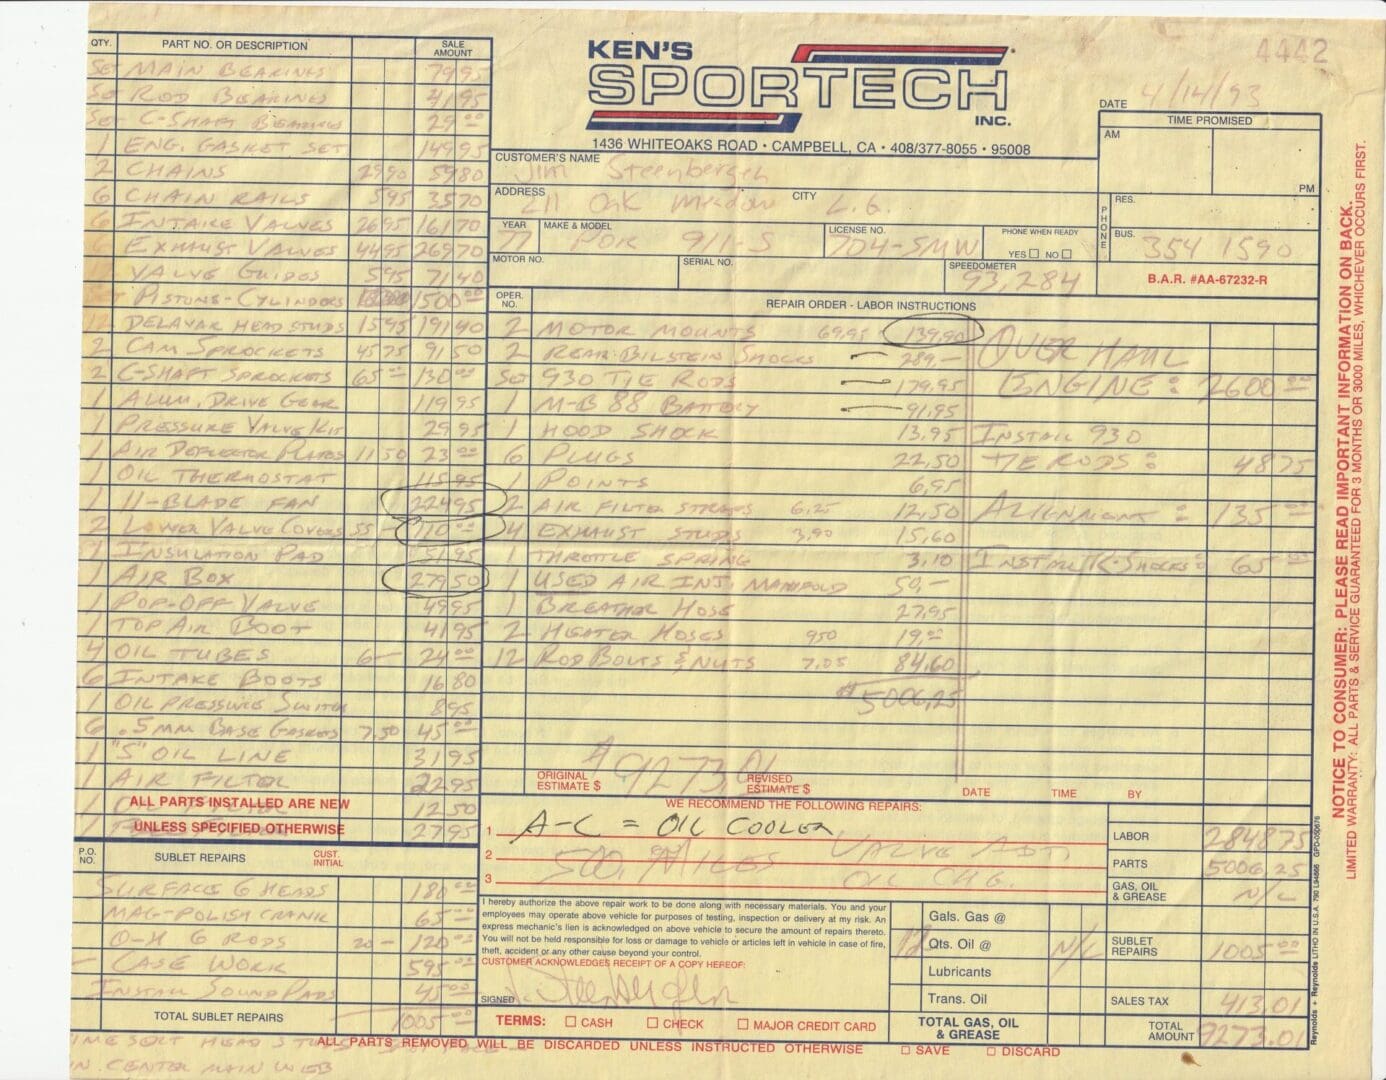 KEN'S
SPORTECH
INC.
1436 WHITEOAKS ROAD • CAMPBELL, CA • 408/377-8055 • 95008
4442
DATE 4/14/93
TIME PROMISED
AM
PM
CUSTOMER'S NAME Jim Steenbergen
ADDRESS 211 Oak Meadow CITY L.G.
YEAR 77 MAKE & MODEL POR 911-S LICENSE NO. 704-SMW PHONE WHEN READY YES NO
MOTOR NO. SERIAL NO. SPEEDOMETER 93,284
PHONE RES. BUS. 354 1590
B.A.R. #AA-67232-R
QTY. PART NO. OR DESCRIPTION SALE AMOUNT
SET MAIN BEARINGS 79 95
SET ROD BEARINGS 41 95
SET C-SHAFT BEARINGS 29 00
1 ENG. GASKET SET 149 95
2 CHAINS 29 90 59 80
6 CHAIN RAILS 5 95 35 70
6 INTAKE VALVES 26 95 161 70
6 EXHAUST VALVES 44 95 269 70
12 VALVE GUIDES 5 95 71 40
SET PISTONS-CYLINDERS 1500 00
12 DELAVAR HEAD STUDS 15 95 191 40
2 CAM SPROCKETS 45 75 91 50
2 C-SHAFT SPROCKETS 65 00 130 00
1 ALUM. DRIVE GEAR 119 95
1 PRESSURE VALVE KIT 29 95
1 AIR DEFLECTOR PLATES 11 50 23 00
1 OIL THERMOSTAT 115 95
1 11-BLADE FAN 224 95
2 LOWER VALVE COVERS 55 - 110 00
1 INSULATION PAD 51 95
1 AIR BOX 279 50
1 POP-OFF VALVE 49 95
1 TOP AIR BOOT 41 95
4 OIL TUBES 6 - 24 00
6 INTAKE BOOTS 16 80
1 OIL PRESSURE SWITCH 8 95
6 .5MM BASE GASKETS 7.50 45 00
1 "S" OIL LINE 31 95
1 AIR FILTER 22 95
1 OIL FILTER 12 50
1 27 95
ALL PARTS INSTALLED ARE NEW
UNLESS SPECIFIED OTHERWISE
P.O. NO. SUBLET REPAIRS CUST. INITIAL
SURFACE 6 HEADS 180 00
MAG-POLISH CRANK 65 00
O-H 6 RODS 20 - 120 00
- CASE WORK 595 00
INSTALL SOUND PADS 45 00
TOTAL SUBLET REPAIRS 1005 00
OPER. NO. REPAIR ORDER - LABOR INSTRUCTIONS
2 MOTOR MOUNTS 69.95 139.90
2 REAR BILSTEIN SHOCKS 289.-
SET 930 TIE RODS 179.95
1 M-B 88 BATTERY 91.95
1 HOOD SHOCK 13.95
6 PLUGS 22.50
1 POINTS 6.95
2 AIR FILTER STRAPS 6.25 12.50
4 EXHAUST STUDS 3.90 15.60
1 THROTTLE SPRING 3.10
1 USED AIR INT. MANIFOLD 50.-
1 BREATHER HOSE 27.95
2 HEATER HOSES 9.50 19.00
12 ROD BOLTS & NUTS 7.05 84.60
$5006.25
OVERHAUL
ENGINE: 2600 00
INSTALL 930
TIE RODS: 48 75
ALIGNMENT: 135 00
INSTALL R-SHOCKS: 65 00
ORIGINAL ESTIMATE $ 9273.01 REVISED ESTIMATE $ DATE TIME BY
WE RECOMMEND THE FOLLOWING REPAIRS:
1 A-C = OIL COOLER
2 500 MILES VALVE ADJ
3 OIL CHG.
I hereby authorize the above repair work to be done along with necessary materials. You and your
employees may operate above vehicle for purposes of testing, inspection or delivery at my risk. An
express mechanic's lien is acknowledged on above vehicle to secure the amount of repairs thereto.
You will not be held responsible for loss or damage to vehicle or articles left in vehicle in case of fire,
theft, accident or any other cause beyond your control.
CUSTOMER ACKNOWLEDGES RECEIPT OF A COPY HEREOF:
SIGNED
TERMS: CASH CHECK MAJOR CREDIT CARD
Gals. Gas @
12 Qts. Oil @ N/C
Lubricants
Trans. Oil
TOTAL GAS, OIL & GREASE
LABOR 2848 75
PARTS 5006.25
GAS, OIL & GREASE N/C
SUBLET REPAIRS 1005 00
SALES TAX 413.01
TOTAL AMOUNT 9273.01
ALL PARTS REMOVED WILL BE DISCARDED UNLESS INSTRUCTED OTHERWISE SAVE DISCARD
HEAD
IN CENTER MAIN WEB
NOTICE TO CONSUMER: PLEASE READ IMPORTANT INFORMATION ON BACK.
LIMITED WARRANTY: ALL PARTS & SERVICE GUARANTEED FOR 3 MONTHS OR 3000 MILES, WHICHEVER OCCURS FIRST.
Reynolds + Reynolds LITHO IN U.S.A.